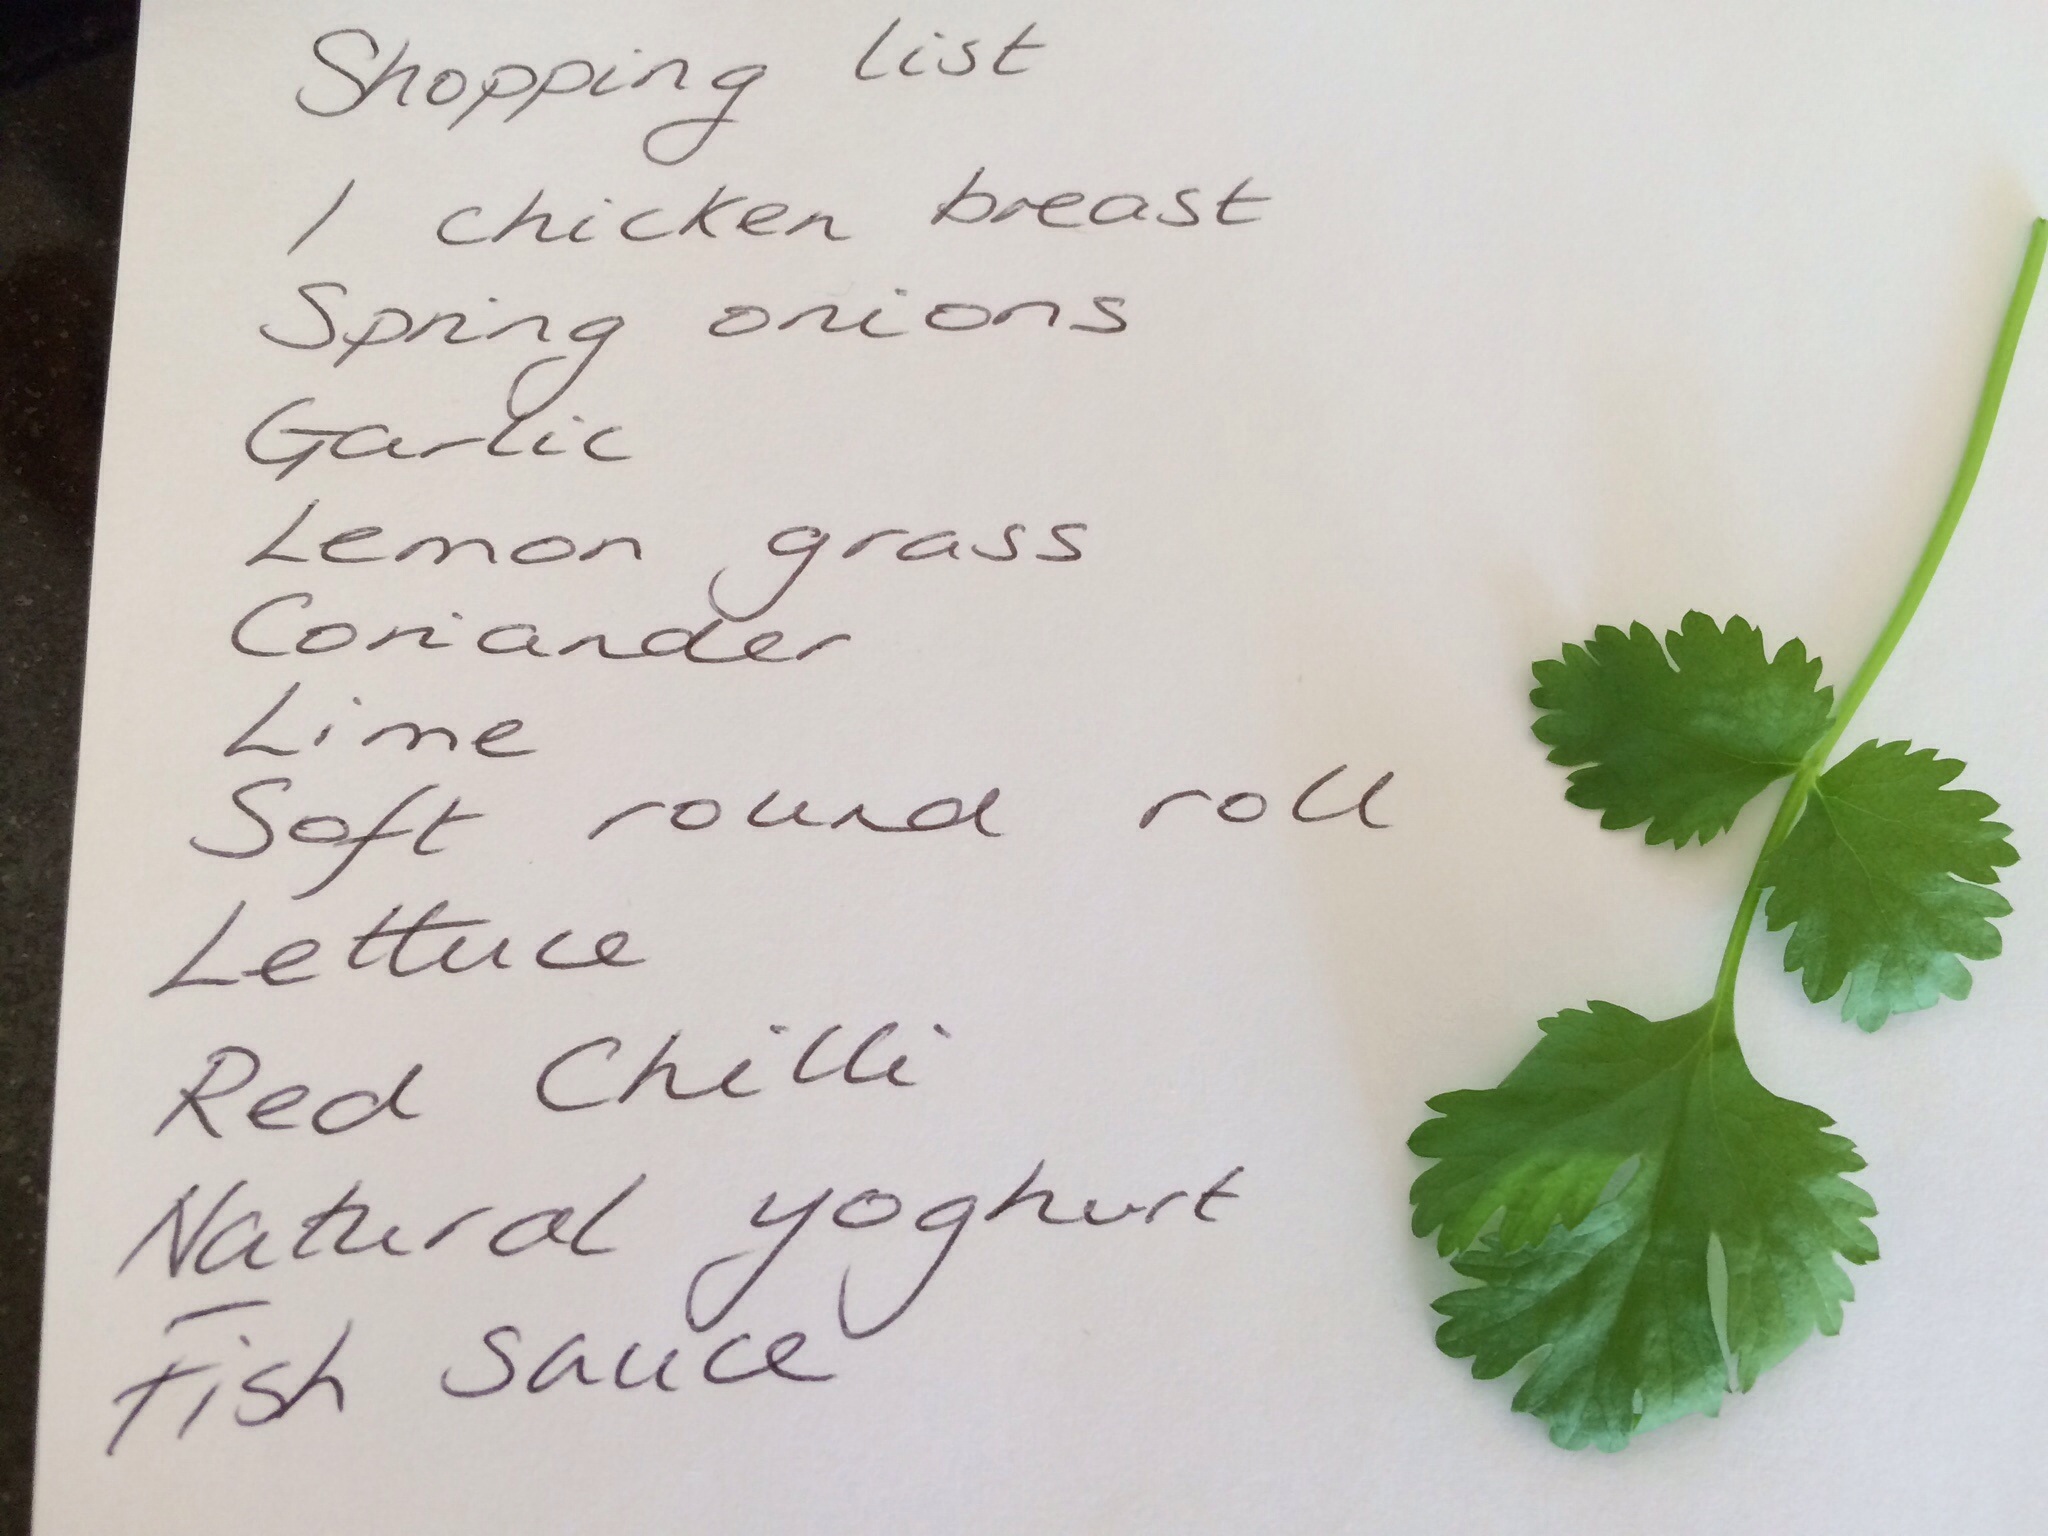 Shopping list
1 chicken breast
Spring onions
Garlic
Lemon grass
Coriander
Lime
Soft round roll
Lettuce
Red Chilli
Natural yoghurt
Fish sauce